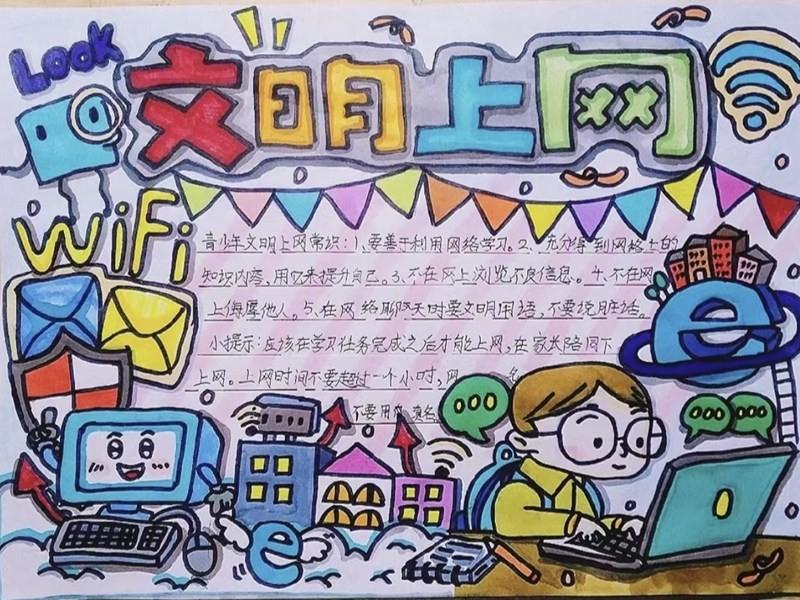 Look
文明上网
WiFi
青少年文明上网常识：1、要善于利用网络学习。2、充分得到网络上的
知识内容，用它来提升自己。3、不在网上浏览不良信息。4、不在网
上侮辱他人。5、在网络聊天时要文明用语，不要说脏话。
小提示：应该在学习任务完成之后才能上网，在家长陪同下
上网。上网时间不要超过一个小时，网
不要用真名
e
e